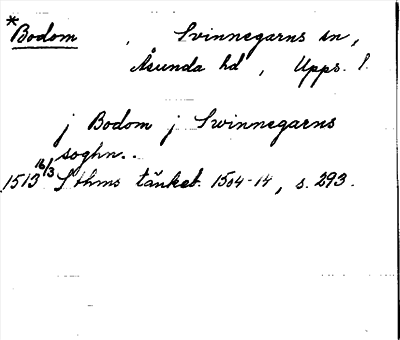 *Bodom , Svinnegarns sn,
Åsunda hd, Upps. l.
j Bodom j Swinnegarns
soghn..
1513 16/3 Sthms tänkeb. 1504-14, s. 293.